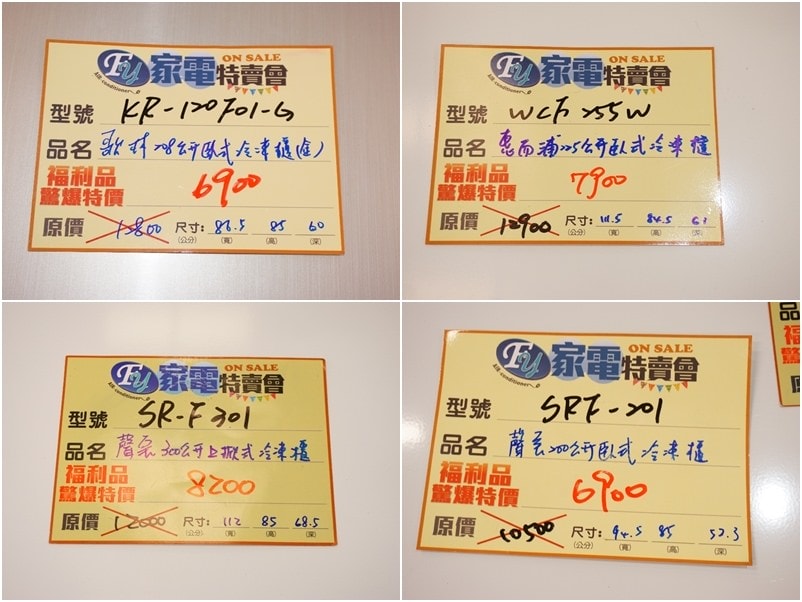 FU 家電特賣會 ON SALE
AIR conditioner
型號 KR-120F01-G
品名 歌林208公升臥式冷凍櫃(金)
福利品
驚爆特價 6900
原價 尺寸: 86.5 85 60
(公分) (寬) (高) (深)
FU 家電特賣會 ON SALE
AIR conditioner
型號 WCF255W
品名 惠而浦225公升臥式冷凍櫃
福利品
驚爆特價 7900
原價 12900 尺寸: 111.5 84.5 61
(公分) (寬) (高) (深)
FU 家電特賣會 ON SALE
AIR conditioner
型號 SR-F301
品名 聲寶300公升上掀式冷凍櫃
福利品
驚爆特價 8200
原價 12000 尺寸: 112 85 68.5
(公分) (寬) (高) (深)
FU 家電特賣會 ON SALE
AIR conditioner
型號 SRF-201
品名 聲寶200公升臥式冷凍櫃
福利品
驚爆特價 6900
原價 10500 尺寸: 94.5 85 52.3
(公分) (寬) (高) (深)